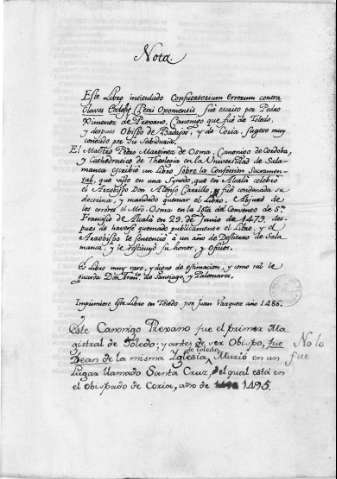 Nota
Este Libro intitulado Confutatorium Errorum contra
Claves Ecclesiæ Petri Oxomensis fué escrito por Pedro
Ximenez de Prexano, Canonigo que fué de Toledo,
y despues Obispo de Badajoz, y de Coria, sugeto muy
conocido por su Sabiduria.
El Maestro Pedro Martinez de Osma, Canonigo de Cordoba,
y Cathedratico de Theologia en la Universidad de Sala-
manca escribió un Libro sobre la Confession Sacramen-
tal, que visto en una Junta, que en Alcalá celebró
el Arzobispo Don Alonso Carrillo, fué condenada su
doctrina, y mandado quemar el Libro. Abjuró de
los errores el Mro. Osma en la Igla. del Convento de Sn.
Francisco de Alcalá en 29. de Junio de 1479. des-
pues de haverse quemado publicamente el Libro, y el
Arzobispo le sentenció à un año de Destierro de Sala-
manca, y le restituyó su honor, y oficios.
Es Libro muy raro, y digno de estimacion, y como tal le
guarda de Santiago, y Palomares.
Imprimiose este Libro en Toledo por Juan Vazquez año 1486.
Este Canonigo Prexano fue el primer Ma
gistral de Toledo; y antes de ser Obispo, fue No lo
Dean de la misma Yglesia de toledo, Murió en un fue
Lugar llamado Santa Cruz, el qual está en
el Obispado de Coria, año de 1495.